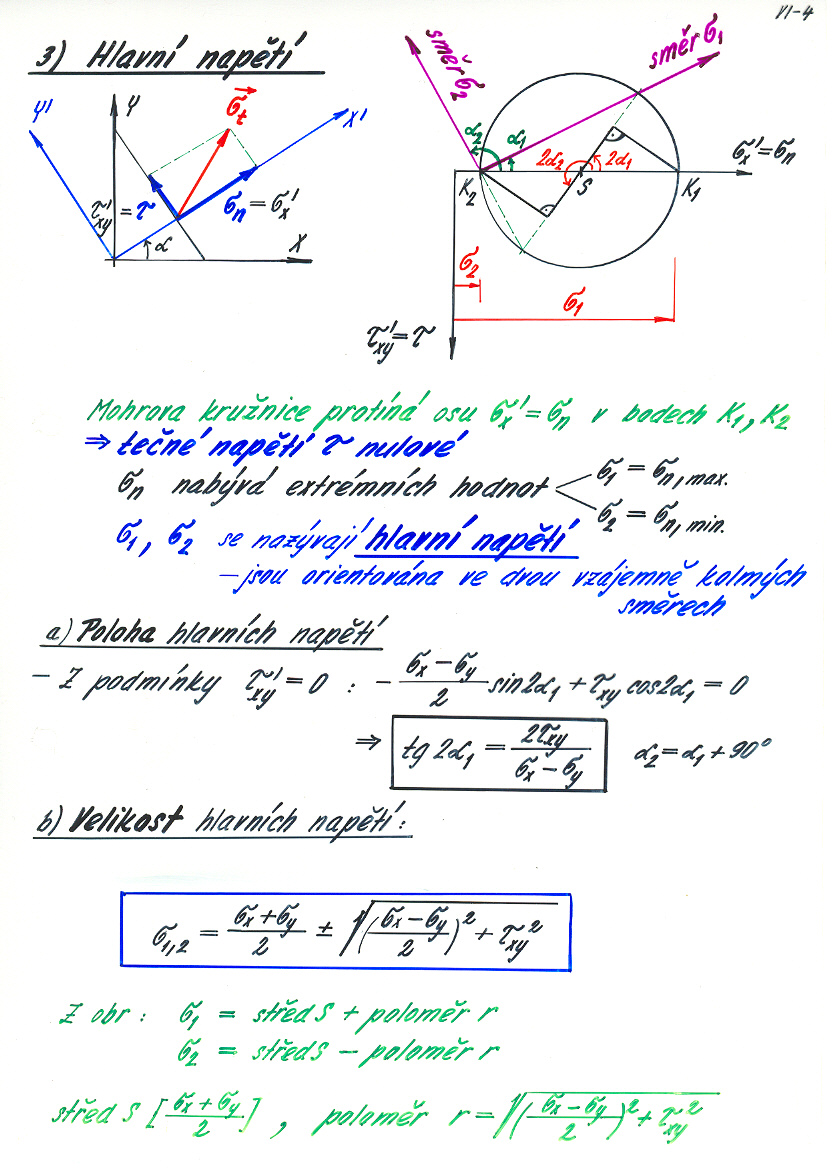 VI-4
3) Hlavní napětí
y' y σt x'
τ'xy = τ σn = σx' α x
směr σ2 směr σ1
α2 α1 2α2 2α1 σx' = σn
K2 S K1
σ2
σ1
τ'xy = τ
Mohrova kružnice protíná osu σx' = σn v bodech K1, K2
⇒ tečné napětí τ nulové
σn nabývá extrémních hodnot σ1 = σn, max.
σ2 = σn, min.
σ1, σ2 se nazývají hlavní napětí
– jsou orientována ve dvou vzájemně kolmých
směrech
a) Poloha hlavních napětí
– Z podmínky τ'xy = 0 : – (σx – σy)/2 sin2α1 + τxy cos2α1 = 0
⇒ tg 2α1 = 2τxy/(σx – σy) α2 = α1 + 90°
b) Velikost hlavních napětí:
σ1,2 = (σx + σy)/2 ± √((σx – σy)/2)² + τxy²
Z obr : σ1 = střed S + poloměr r
σ2 = střed S – poloměr r
střed S [(σx + σy)/2] , poloměr r = √((σx – σy)/2)² + τxy²